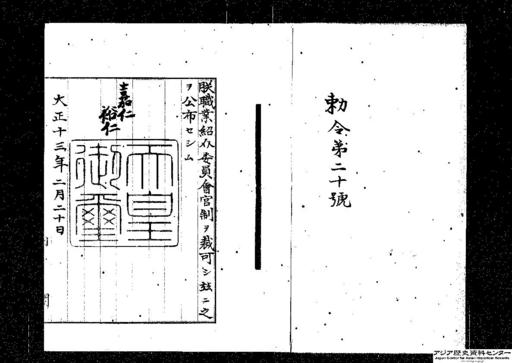 勅令第二十號
朕職業紹介委員會官制ヲ裁可シ玆ニ之
ヲ公布セシム
嘉仁
裕仁
天皇
御璽
大正十三年二月二十日
アジア歴史資料センター
Japan Center for Asian Historical Records